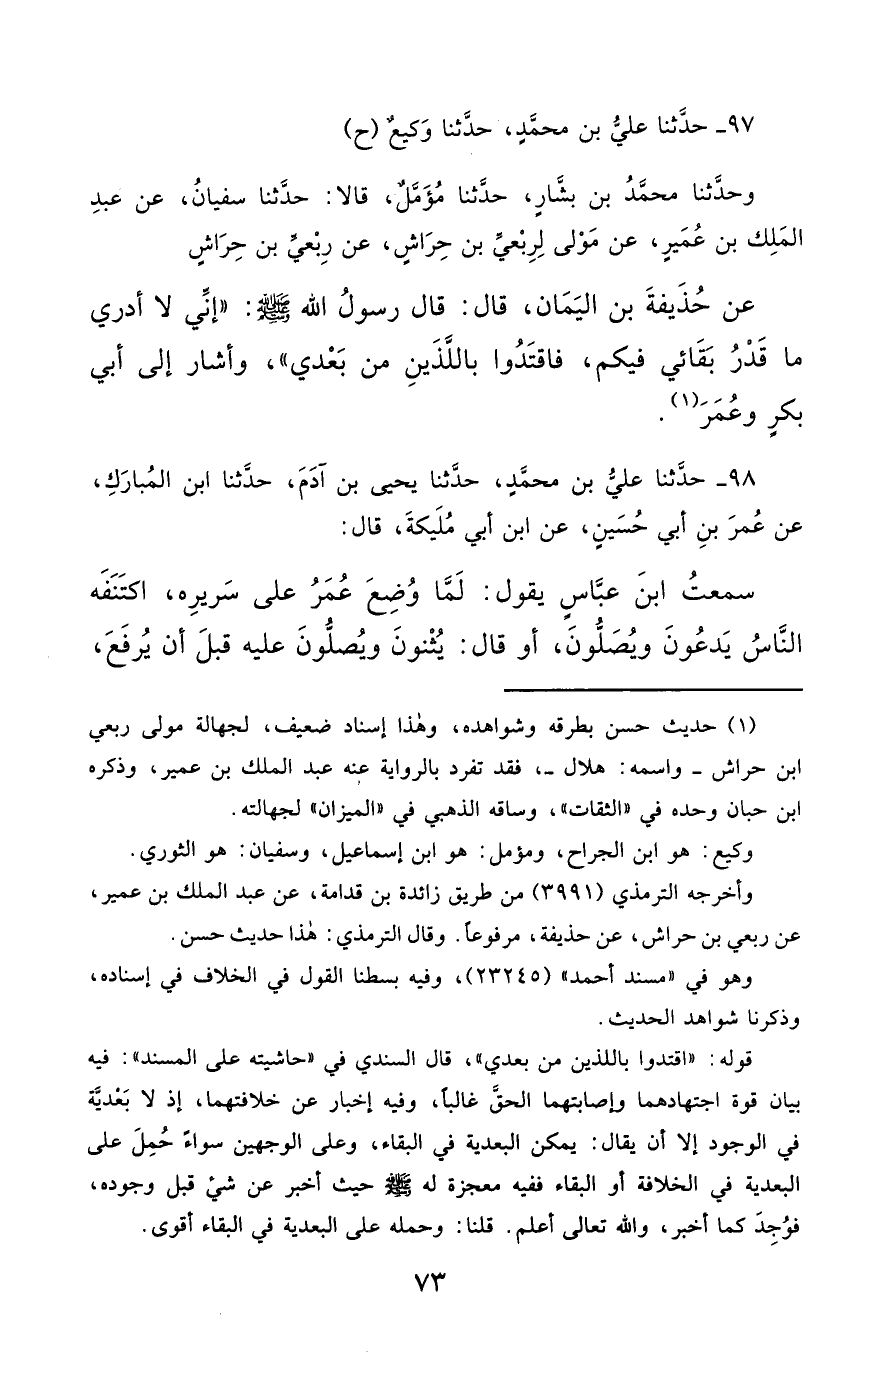 ٩٧ـ حدَّثنا عليُّ بن محمَّدٍ، حدَّثنا وَكيعٌ (ح)
وحدَّثنا محمَّدُ بن بشَّارٍ، حدَّثنا مُؤَمَّلٌ، قالا: حدَّثنا سفيانُ، عن عبدِ
المَلِك بن عُمَيرٍ، عن مَوْلى لِرِبْعيِّ بن حِرَاشٍ، عن رِبْعيِّ بن حِرَاشٍ
عن حُذَيفةَ بن اليَمَان، قال: قال رسولُ الله ﷺ: «إنِّي لا أدري
ما قَدْرُ بَقَائي فيكم، فاقتَدُوا باللَّذَينِ من بَعْدي»، وأشار إلى أبي
بكرٍ وعُمَرَ(١).
٩٨ـ حدَّثنا عليُّ بن محمَّدٍ، حدَّثنا يحيى بن آدَمَ، حدَّثنا ابن المُبارَكِ،
عن عُمرَ بنِ أبي حُسَينٍ، عن ابن أبي مُلَيكةَ، قال:
سمعتُ ابنَ عبَّاسٍ يقول: لَمَّا وُضِعَ عُمَرُ على سَريرِه، اكتَنَفَه
النَّاسُ يَدعُونَ ويُصَلُّونَ، أو قال: يُثْنونَ ويُصلُّونَ عليه قبلَ أن يُرفَعَ،
(١) حديث حسن بطرقه وشواهده، وهٰذا إسناد ضعيف، لجهالة مولى ربعي
ابن حراش ـ واسمه: هلال ـ، فقد تفرد بالرواية عنه عبد الملك بن عمير، وذكره
ابن حبان وحده في «الثقات»، وساقه الذهبي في «الميزان» لجهالته.
وكيع: هو ابن الجراح، ومؤمل: هو ابن إسماعيل، وسفيان: هو الثوري.
وأخرجه الترمذي (٣٩٩١) من طريق زائدة بن قدامة، عن عبد الملك بن عمير،
عن ربعي بن حراش، عن حذيفة، مرفوعاً. وقال الترمذي: هٰذا حديث حسن.
وهو في «مسند أحمد» (٢٣٢٤٥)، وفيه بسطنا القول في الخلاف في إسناده،
وذكرنا شواهد الحديث.
قوله: «اقتدوا باللذين من بعدي»، قال السندي في «حاشيته على المسند»: فيه
بيان قوة اجتهادهما وإصابتهما الحقَّ غالباً، وفيه إخبار عن خلافتهما، إذ لا بَعْديَّة
في الوجود إلا أن يقال: يمكن البعدية في البقاء، وعلى الوجهين سواءً حُمِلَ على
البعدية في الخلافة أو البقاء ففيه معجزة له ﷺ حيث أخبر عن شيْ قبل وجوده،
فوُجِدَ كما أخبر، والله تعالى أعلم. قلنا: وحمله على البعدية في البقاء أقوى.
٧٣